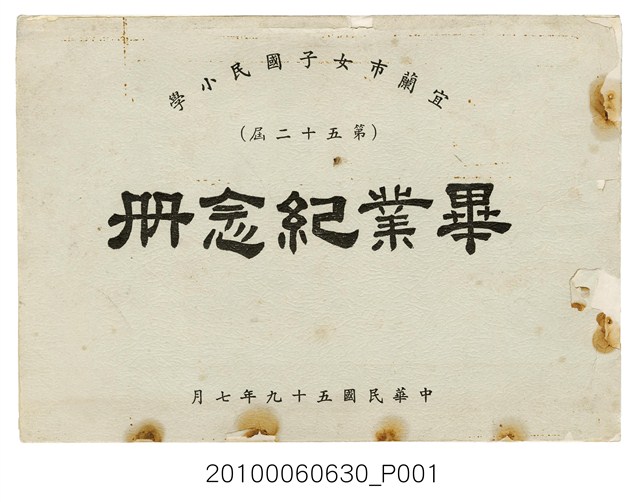 宜蘭市女子國民小學
（第五十二屆）
畢業紀念冊
中華民國五十九年七月
20100060630_P001